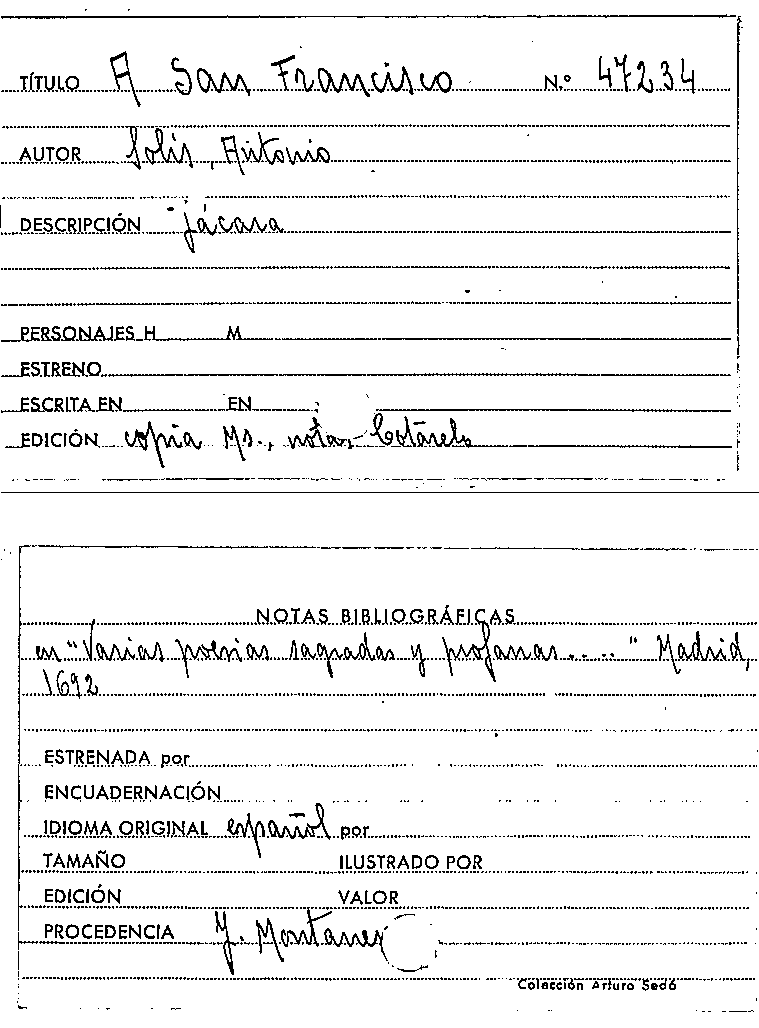 TÍTULO A San Francisco N.º 47234
AUTOR Solís, Antonio
DESCRIPCIÓN jácara
PERSONAJES H M
ESTRENO
ESCRITA EN EN
EDICIÓN copia Ms., notas Cotarelo
NOTAS BIBLIOGRÁFICAS
en "Varias poesias sagradas y profanas....." Madrid,
1692
ESTRENADA por
ENCUADERNACIÓN
IDIOMA ORIGINAL español por
TAMAÑO ILUSTRADO POR
EDICIÓN VALOR
PROCEDENCIA J. Montaner
Colección Arturo Sedó